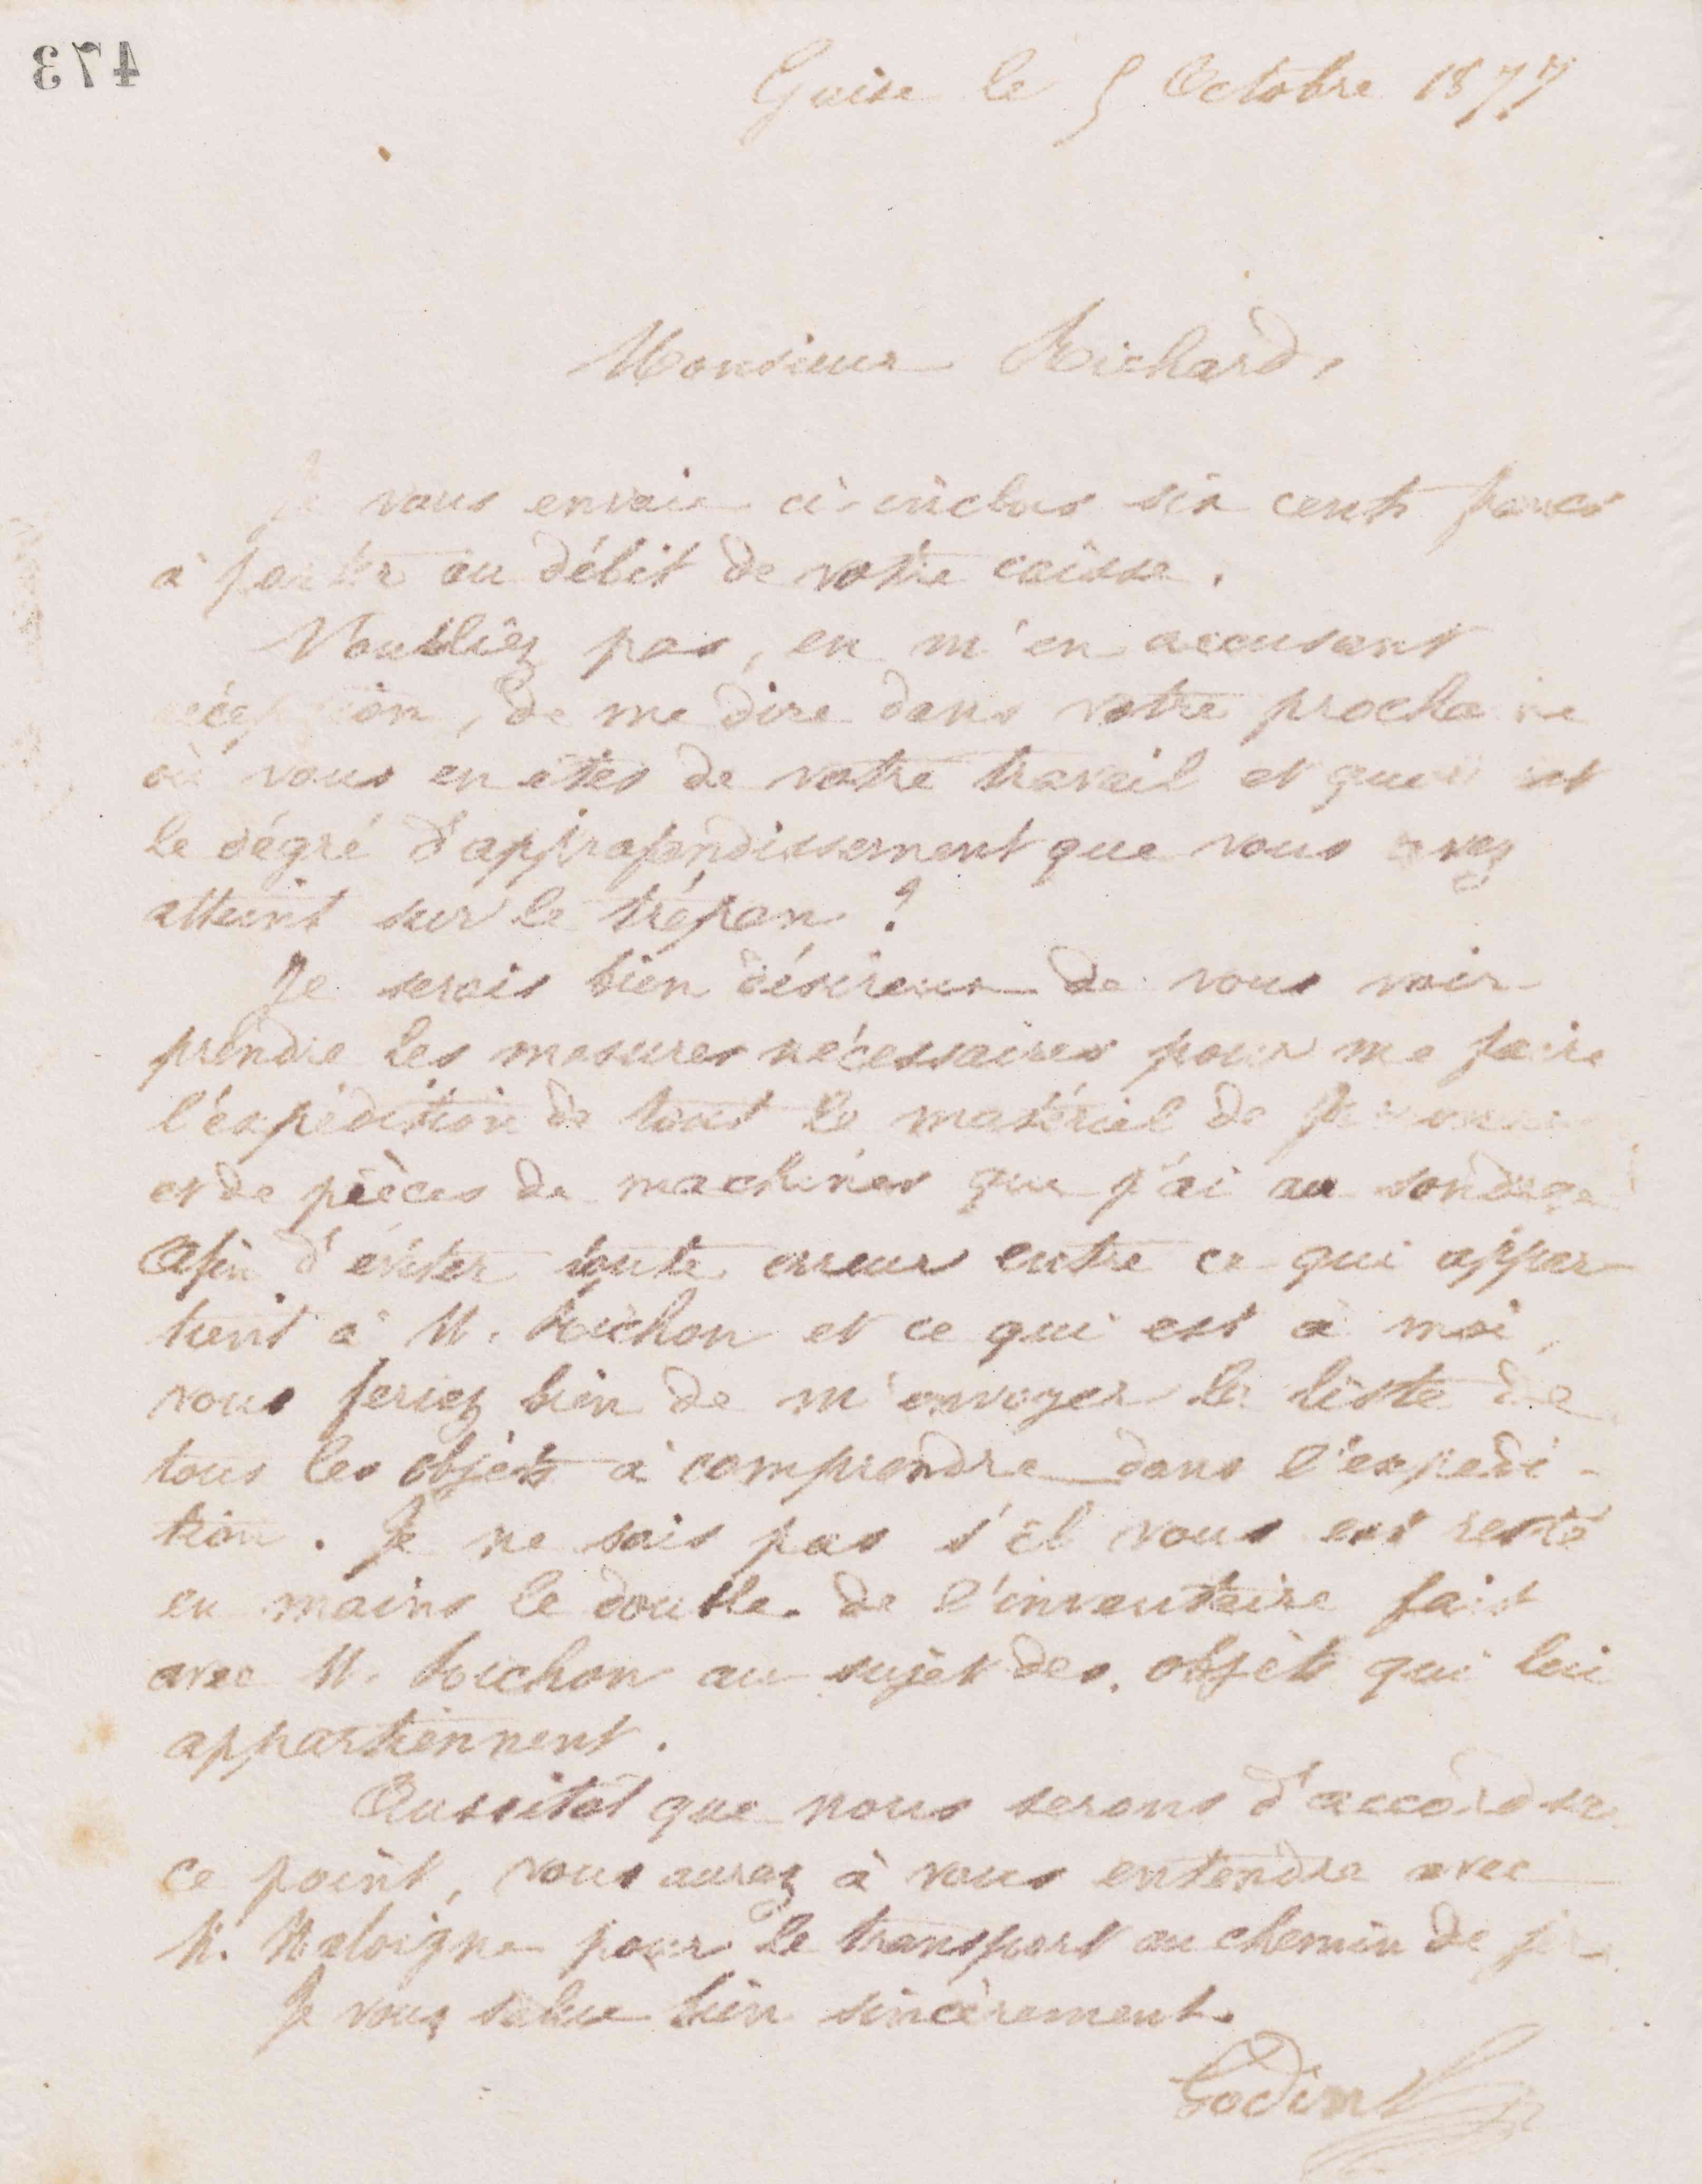 473
Guise le 5 Octobre 1877
Monsieur Richard,
Je vous envoie ci-inclus six cents francs
à porter au débit de votre caisse.
N'oubliez pas, en m'en accusant
réception, de me dire dans votre prochaine
où vous en êtes de votre travail et quel est
le dégré d'approfondissement que vous avez
atteint sur le trépan ?
Je serais bien désireux de vous voir
prendre les mesures nécessaires pour me faire
l'expédition de tout le matériel de
et de pièces de machines que j'ai au sondage
Afin d'éviter toute erreur entre ce qui appar-
tient à M. Pichon et ce qui est à moi,
vous feriez bien de m'envoyer la liste de
tous les objets à comprendre dans l'expédi-
tion. Je ne sais pas s'il vous est resté
en mains le double de l'inventaire fait
avec M. Pichon au sujet des objets qui lui
appartiennent.
Aussitôt que nous serons d'accord sur
ce point, vous aurez à vous entendre avec
M. Maloigne pour le transport au chemin de fer
Je vous salue bien sincèrement.
Godin